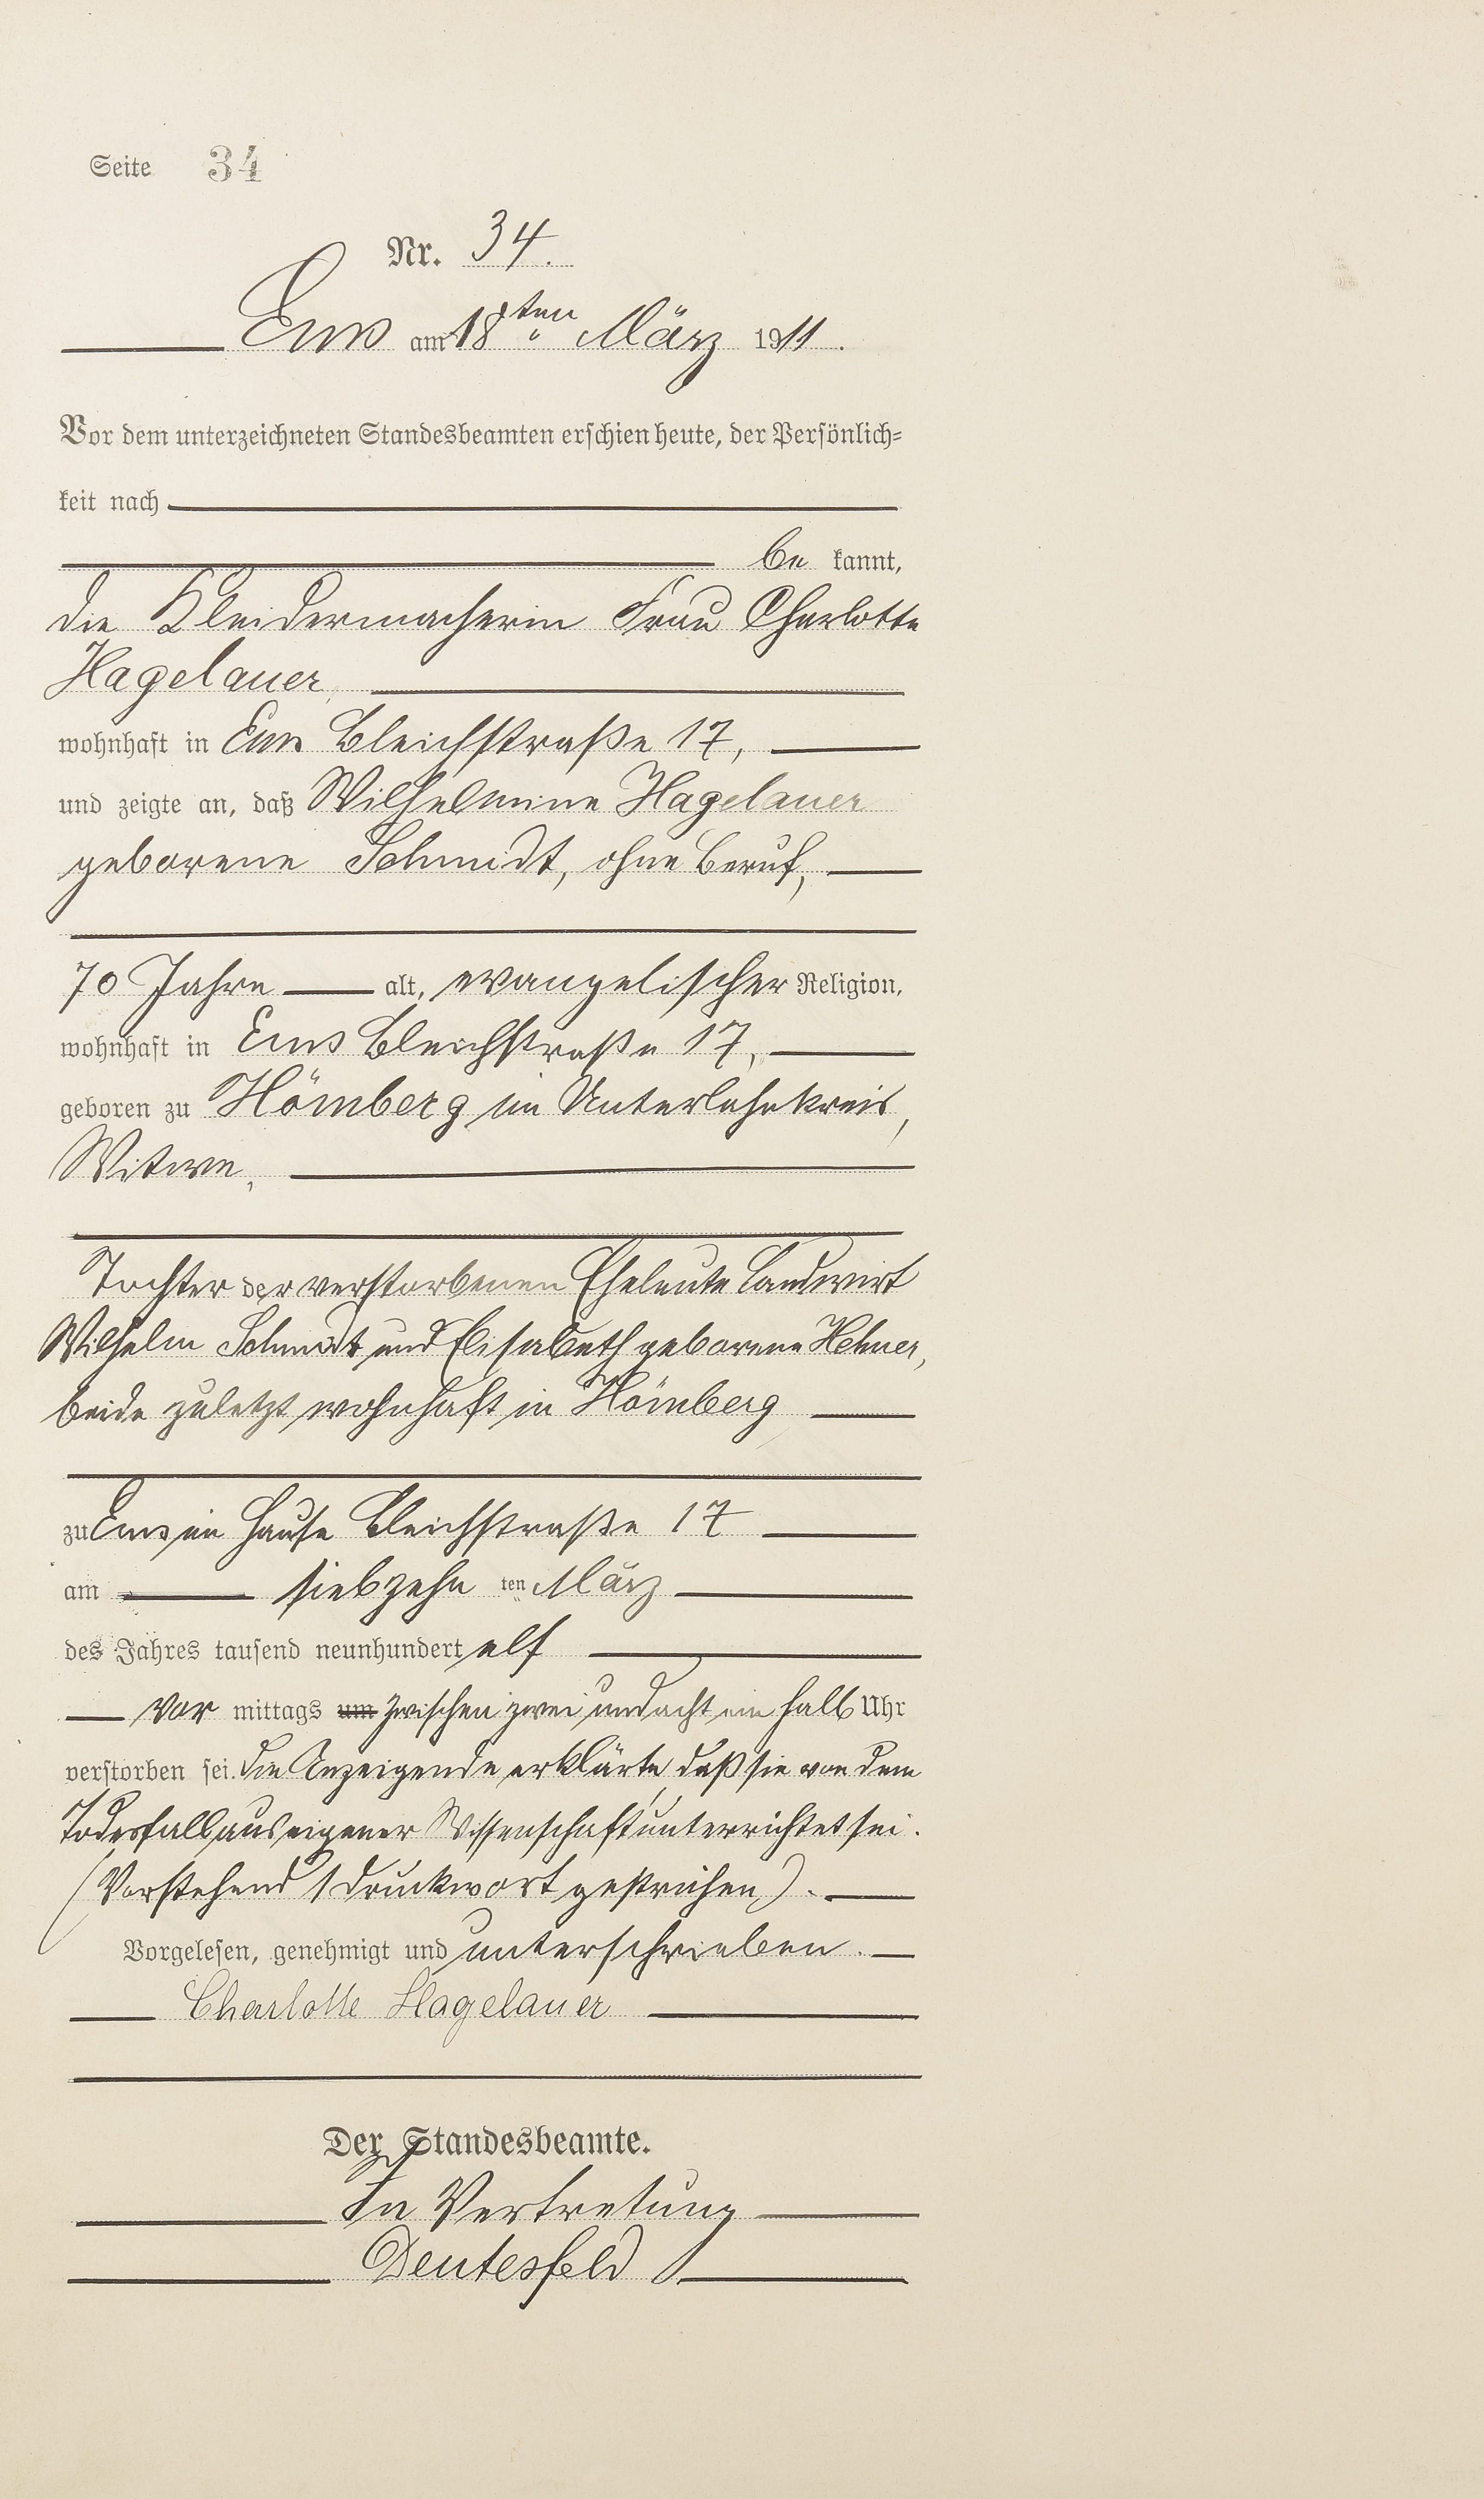 Seite 34
Nr. 34.
Ems am 18ten März 1911.
Vor dem unterzeichneten Standesbeamten erschien heute, der Persönlich-
keit nach
be kannt,
die Kleidermacherin Frau Charlotte
Hagelauer,
wohnhaft in Ems Bleichstraße 17,
und zeigte an, daß Wilhelmine Hagelauer
geborene Schmidt, ohne Beruf,
70 Jahre alt, evangelischer Religion,
wohnhaft in Ems Bleichstraße 17,
geboren zu Hömberg im Unterlahnkreis,
Witwe,
Tochter der verstorbenen Eheleute Landwirt
Wilhelm Schmidt und Elisabeth geborene Hehner,
beide zuletzt wohnhaft in Hömberg
zu Ems im Hause Bleichstraße 17
am siebzehn ten März
des Jahres tausend neunhundert elf
Vor mittags um zwischen zwei und acht ein halb Uhr
verstorben sei. Die Anzeigende erklärte, daß sie von dem
Todesfall aus eigener Wissenschaft unterrichtet sei.
(Vorstehend 1 Druckwort gestrichen).
Vorgelesen, genehmigt und unterschrieben.
Charlotte Hagelauer
Der Standesbeamte.
In Vertretung
Deutesfeld